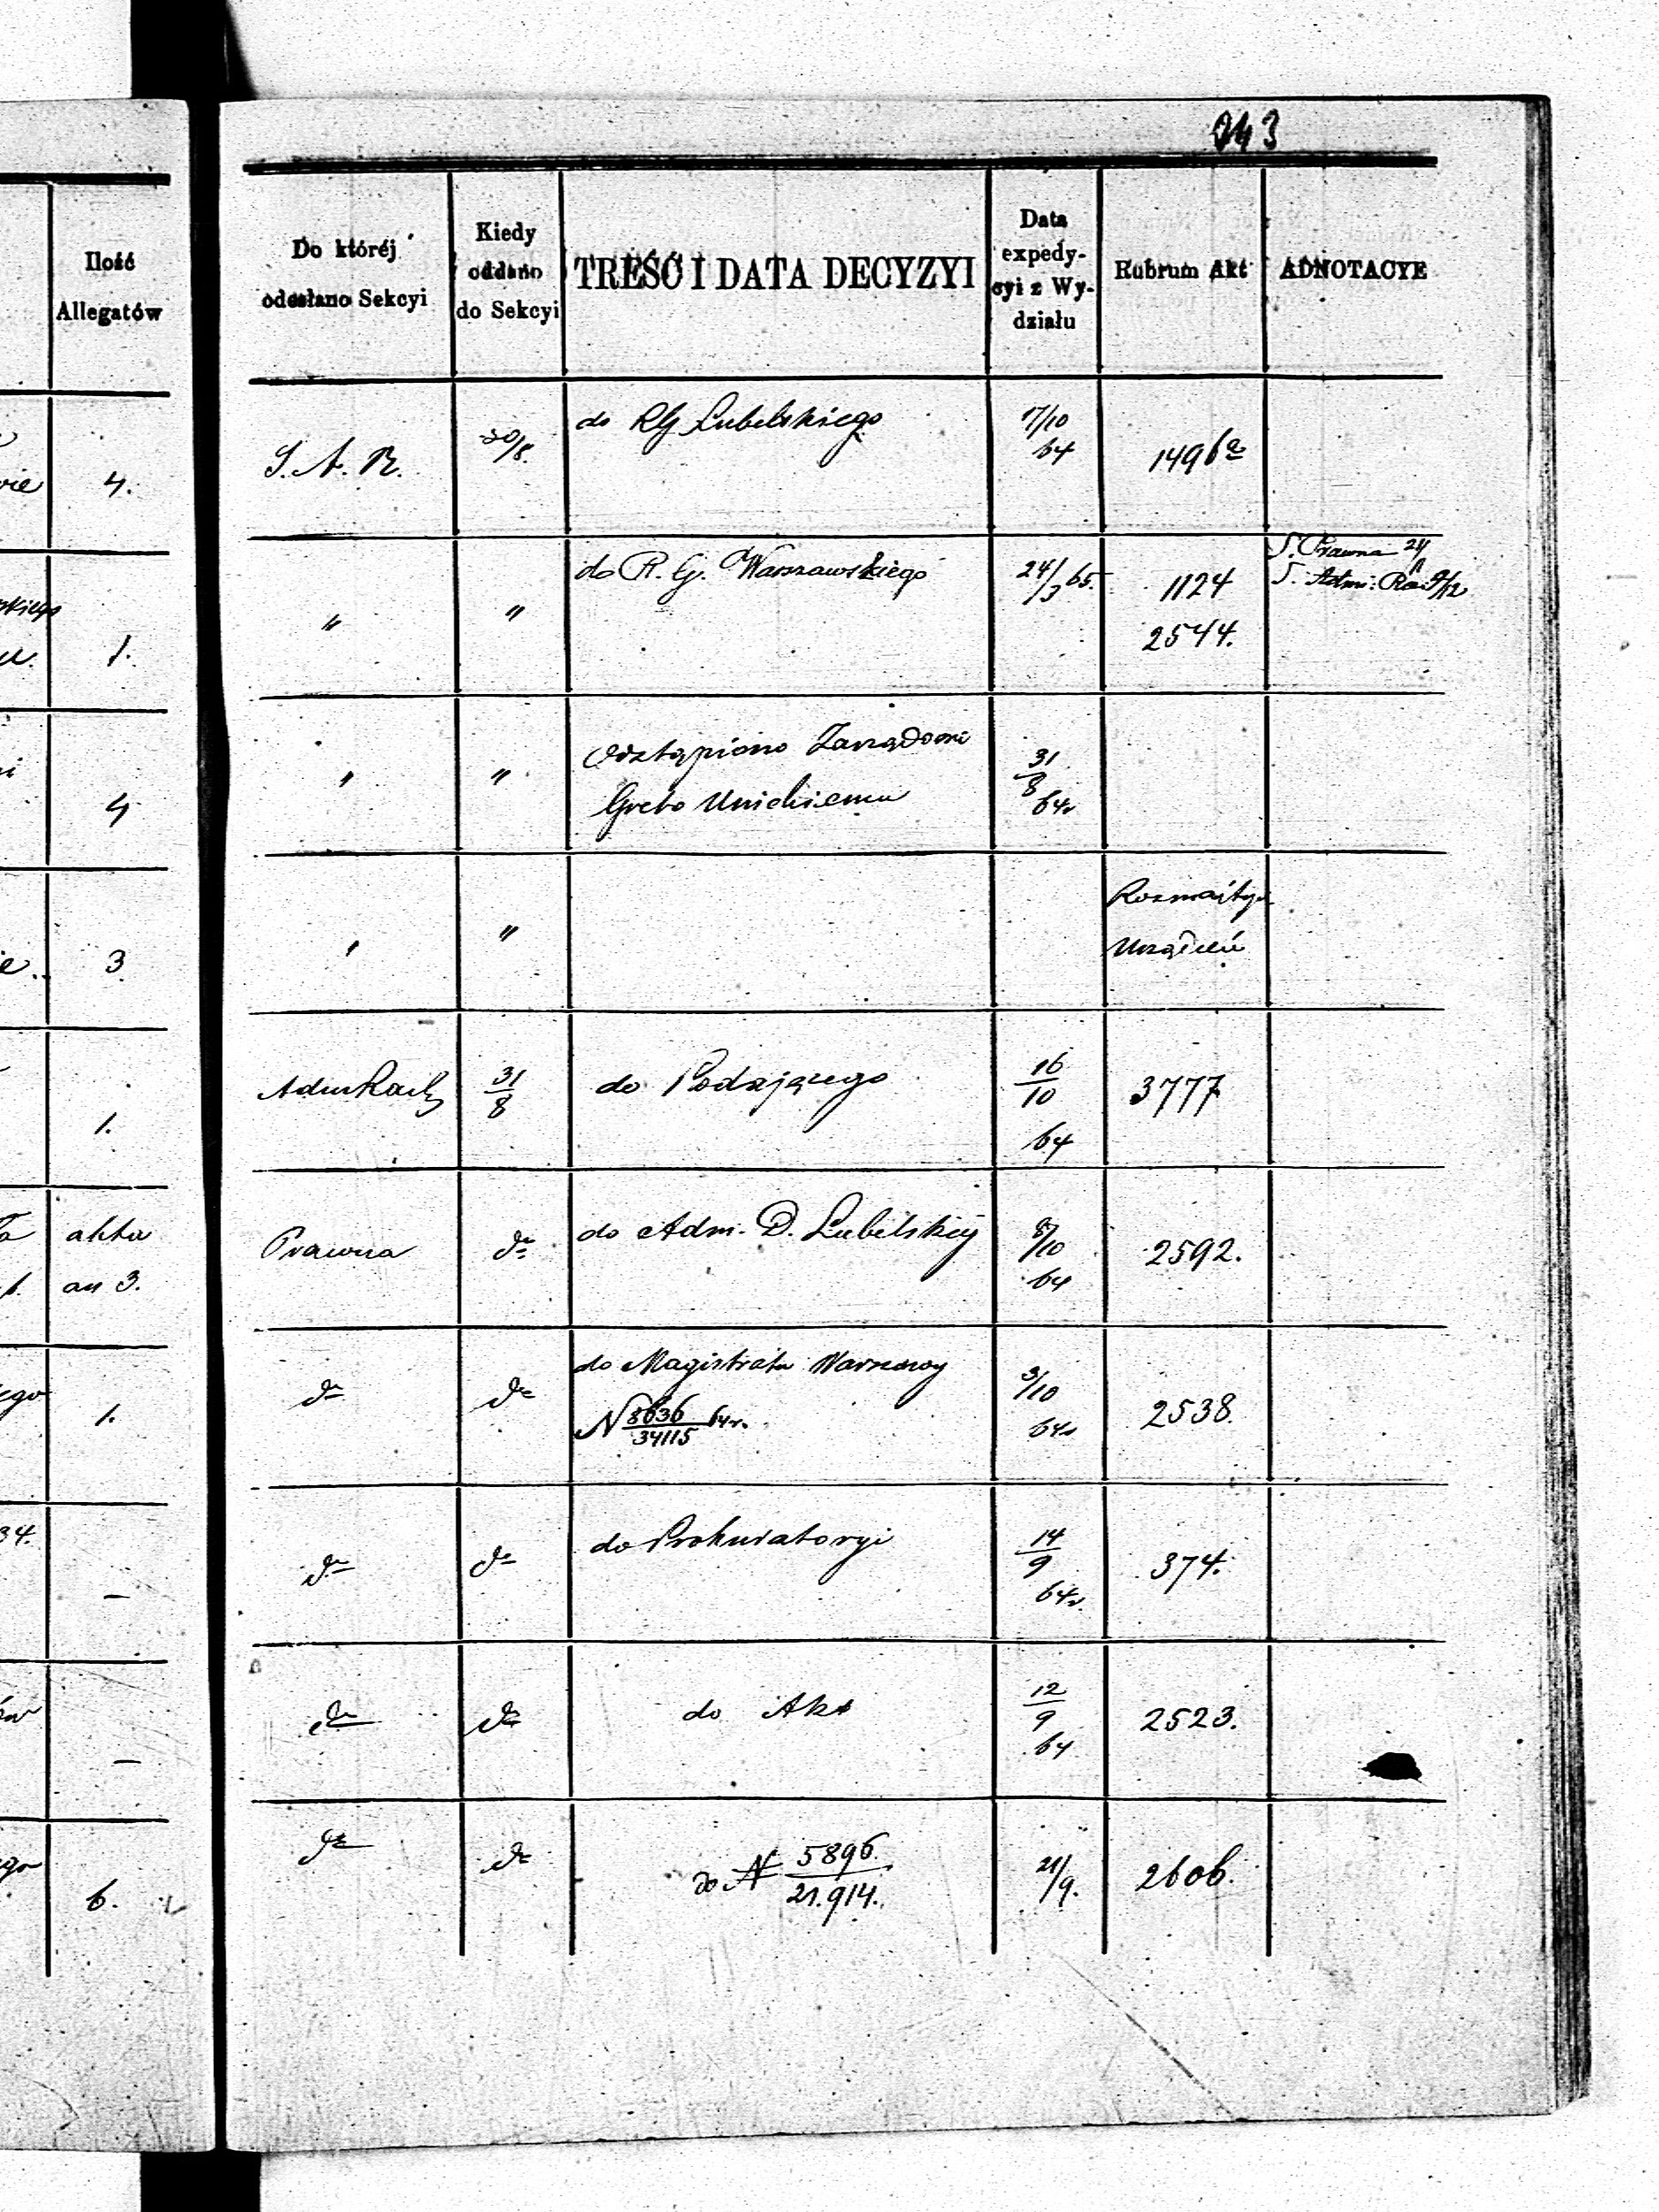 243
Ilość
Allegatów
Do któréj
odesłano Sekcyi
Kiedy
oddano
do Sekcyi
TREŚĆ I DATA DECYZYI
Data
expedy-
cyi z Wy-
działu
Rubrum Akt
ADNOTACYE
4.
S. A. R.
30/8.
do RG Lubelskiego
17/10
64
1496a
1.
"
"
do R. G. Warszawskiego
24/3 65.
1124
2544.
S. Prawna 24/11
S. Adm: Ra 9/12
4
"
"
Odstąpiono Zarządowi
Greko Unickiemu
31/8
64r
3
"
"
Rozmaitych
Urządzeń
1.
AdmRach
31/8
do Podającego
16/10
64
3777
akta
an 3.
Prawna
do
do Adm. D. Lubelskiej
8/10
64
2592.
1.
do
do
do Magistratu Warszawy
N 8636/34115 64r.
3/10
64r
2538.
34.
–
do
do
do Prokuratoryi
14/9
64r.
374.
–
do
do
do Akt
12/9
64
2523.
6.
do
do
do N 5896./21.914.
21/9.
2606.